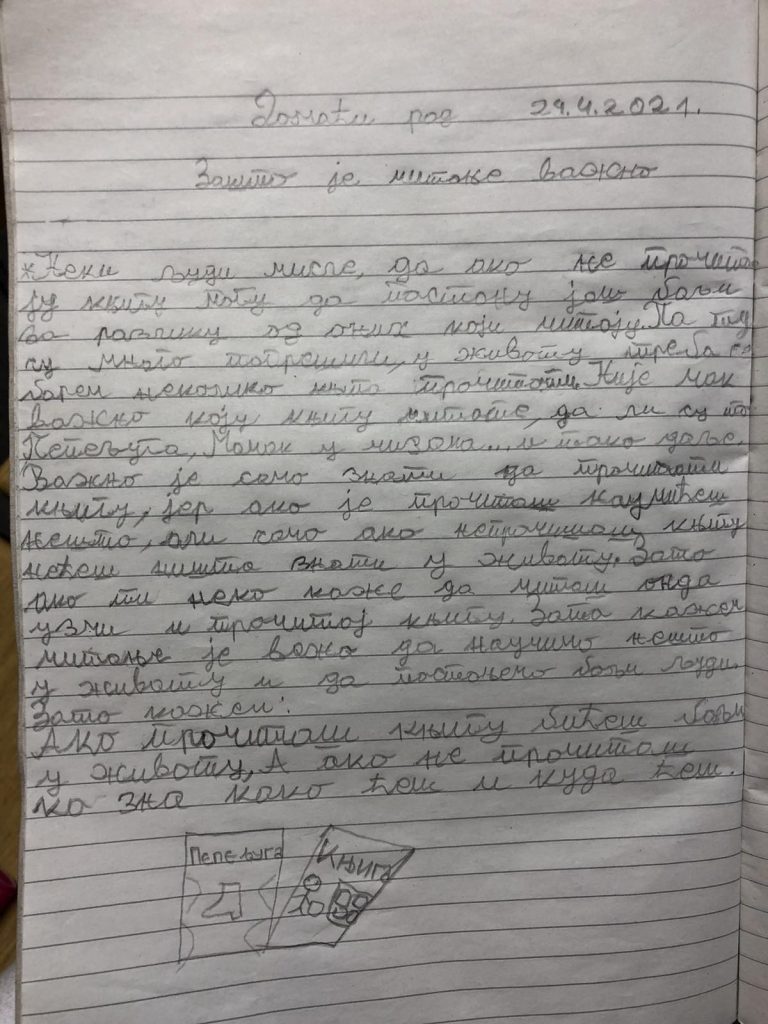 Домаћи рад 29.4.2021.
Зашто је читање важно
*Неки људи мисле, да ако не прочита-
ју књигу могу да постану још бољи
за разлику од оних који читају. Па ту
су много погрешили, у животу треба
барем неколико књига прочитати. Није чак
важно коју књигу читате, да ли су то
Пепељуга, Мачак у чизма... и тако даље.
Важно је само знати да прочитати
књигу, јер ако је прочиташ научићеш
нешто, али само ако непрочиташ књигу
нећеш ништа знати у животу. Зато
ако ти неко каже да читаш онда
узми и прочитај књигу. Зато кажем
читање је важно да научимо нешто
у животу и да постанемо бољи људи.
Зато кажем:
АКО прочиташ књигу бићеш бољи
у животу, А ако не прочиташ
ко зна како ћеш и куда ћеш.
Пепељуга
Књига